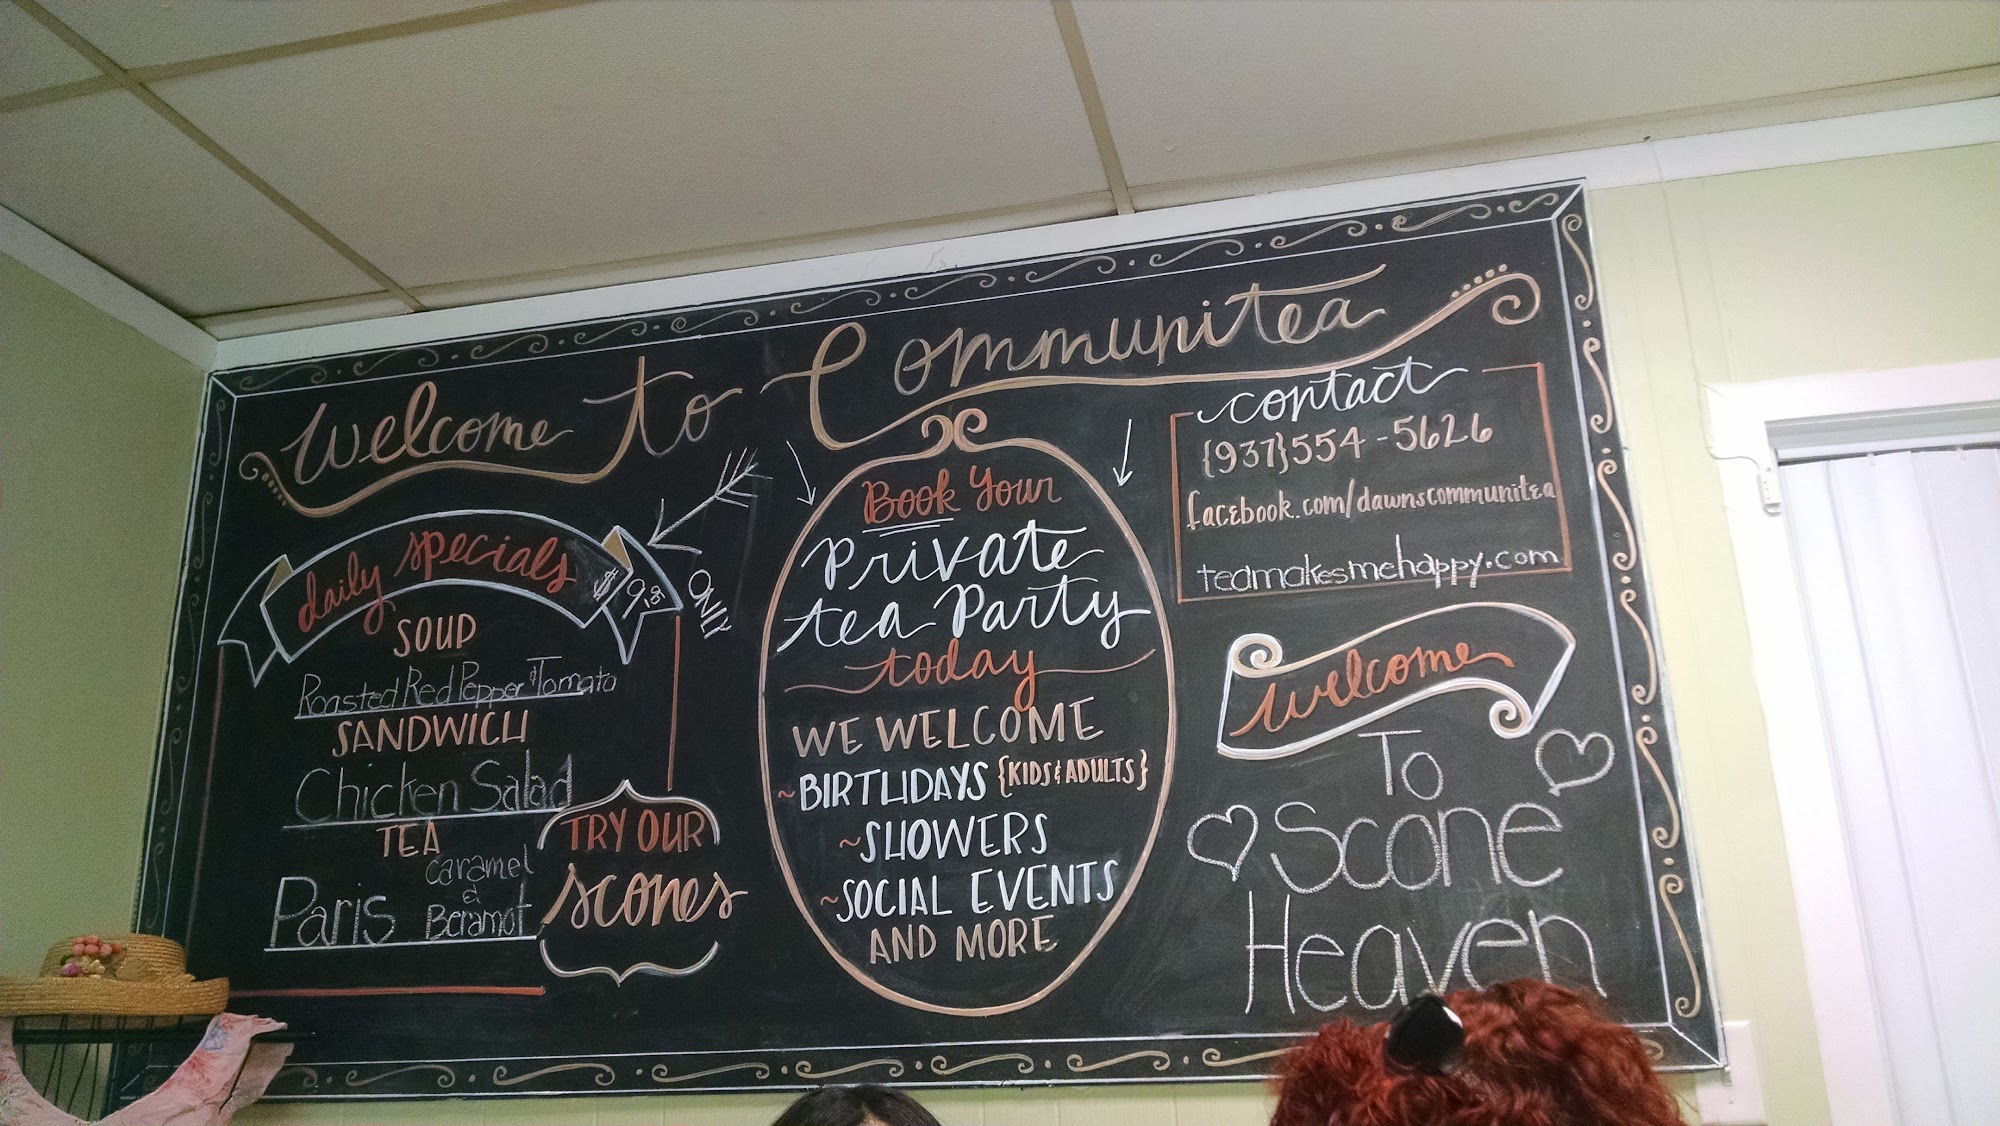 Welcome to Communitea
daily specials
ONLY
SOUP
Roasted Red Pepper & Tomato
SANDWICH
Chicken Salad
TEA
Paris
caramel
&
Beramot
TRY OUR
scones
Book Your
Private
tea Party
today
WE WELCOME
~BIRTHDAYS {KIDS & ADULTS}
~SHOWERS
~SOCIAL EVENTS
AND MORE
contact
{937}554-5626
facebook.com/dawnscommunitea
teamakesmehappy.com
welcome
To
Scone
Heaven